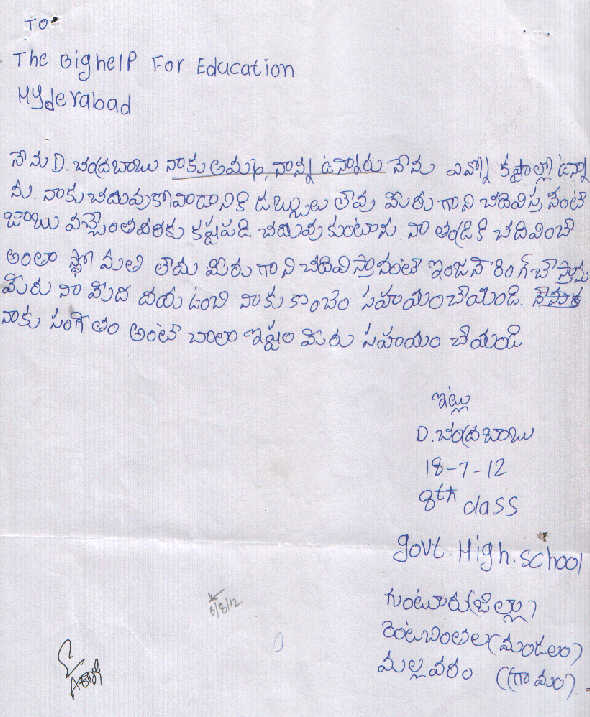 TO
The Bighelp For Education
Hyderabad
నేను D. చంద్రబాబు నాకు అమ్మ నాన్న ఉన్నారు నేను ఎన్నో కష్టాల్లో ఉన్నా
ను నాకు చదువుకోవాడానికి డబ్బులు లేవు మీరు గాని చదివిస్తానంటే
జాబు వచ్చేంతవరకు కష్టపడి చదువు కుంటాను నా తండ్రికి చదివించే
అంతా స్తోమతి లేదు మీరు గాని చదివిస్తానంటే ఇంజనీరింగ్ చేస్తాను
మీరు నా మీద దయ ఉంచి నాకు కొంచెం సహాయం చేయండి.
నాకు సంగీతం అంటే చాలా ఇష్టం మీరు సహాయం చేయండి
ఇట్లు
D. చంద్రబాబు
18-7-12
8th class
govt. High. school
గుంటూరు(జిల్లా)
రెంటచింతల(మండలం)
మల్లవరం ((గ్రామం)